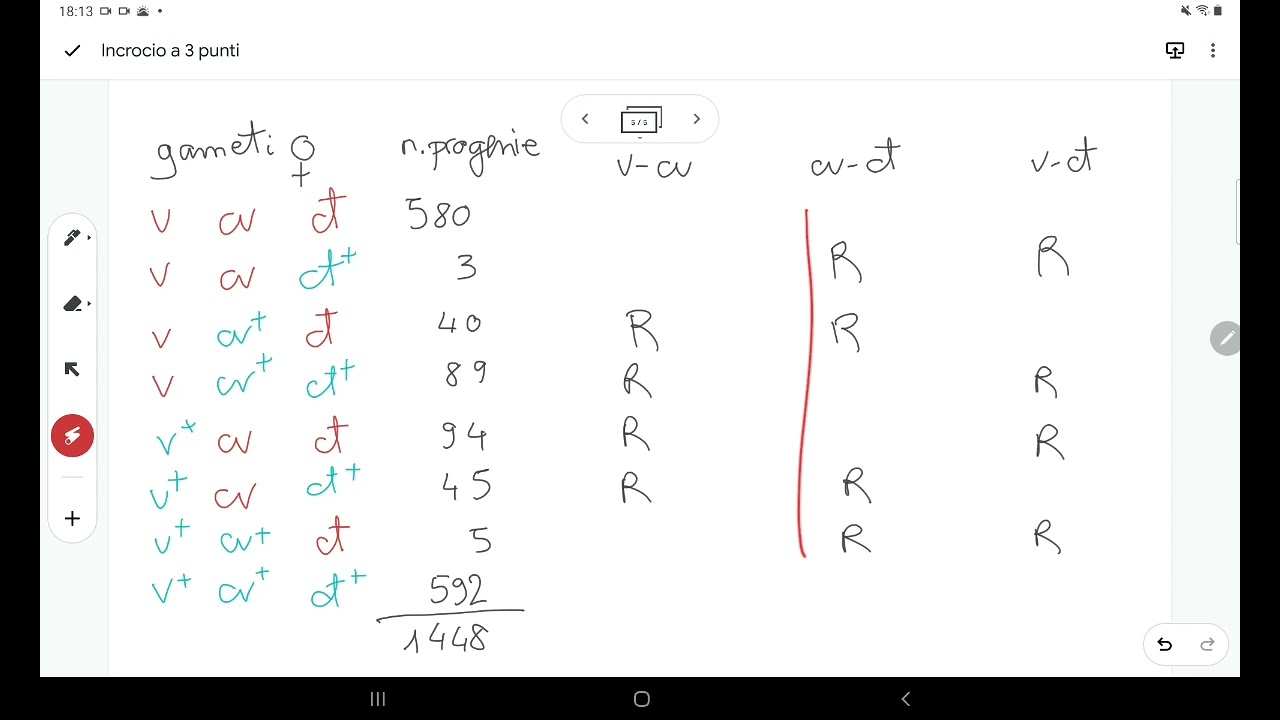 18:13
Incrocio a 3 punti
5/5
gameti ♀ n. progenie v-cv cv-ct v-ct
v cv ct 580
v cv ct+ 3 R R
v cv+ ct 40 R R
v cv+ ct+ 89 R R
v+ cv ct 94 R R
v+ cv ct+ 45 R R
v+ cv+ ct 5 R R
v+ cv+ ct+ 592
1448